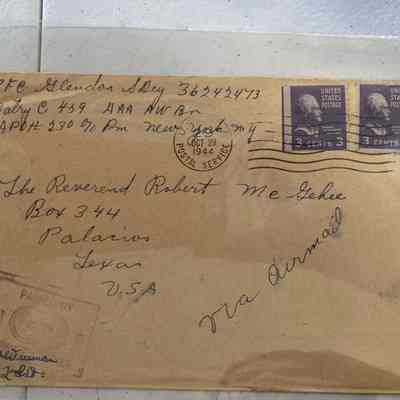 PFC Glendon S Dey 36242473
Batry C 459 AAA AW Bn
APO# 230 c/o Pm New York ny
UNITED STATES POSTAGE
3 CENTS 3
UNITED STATES POSTAGE
3 CENTS
OCT 29
1944
POSTAL SERVICE
The Reverend Robert McGehee
Box 344
Palacios
Texas
USA
via Airmail
2 Lt.